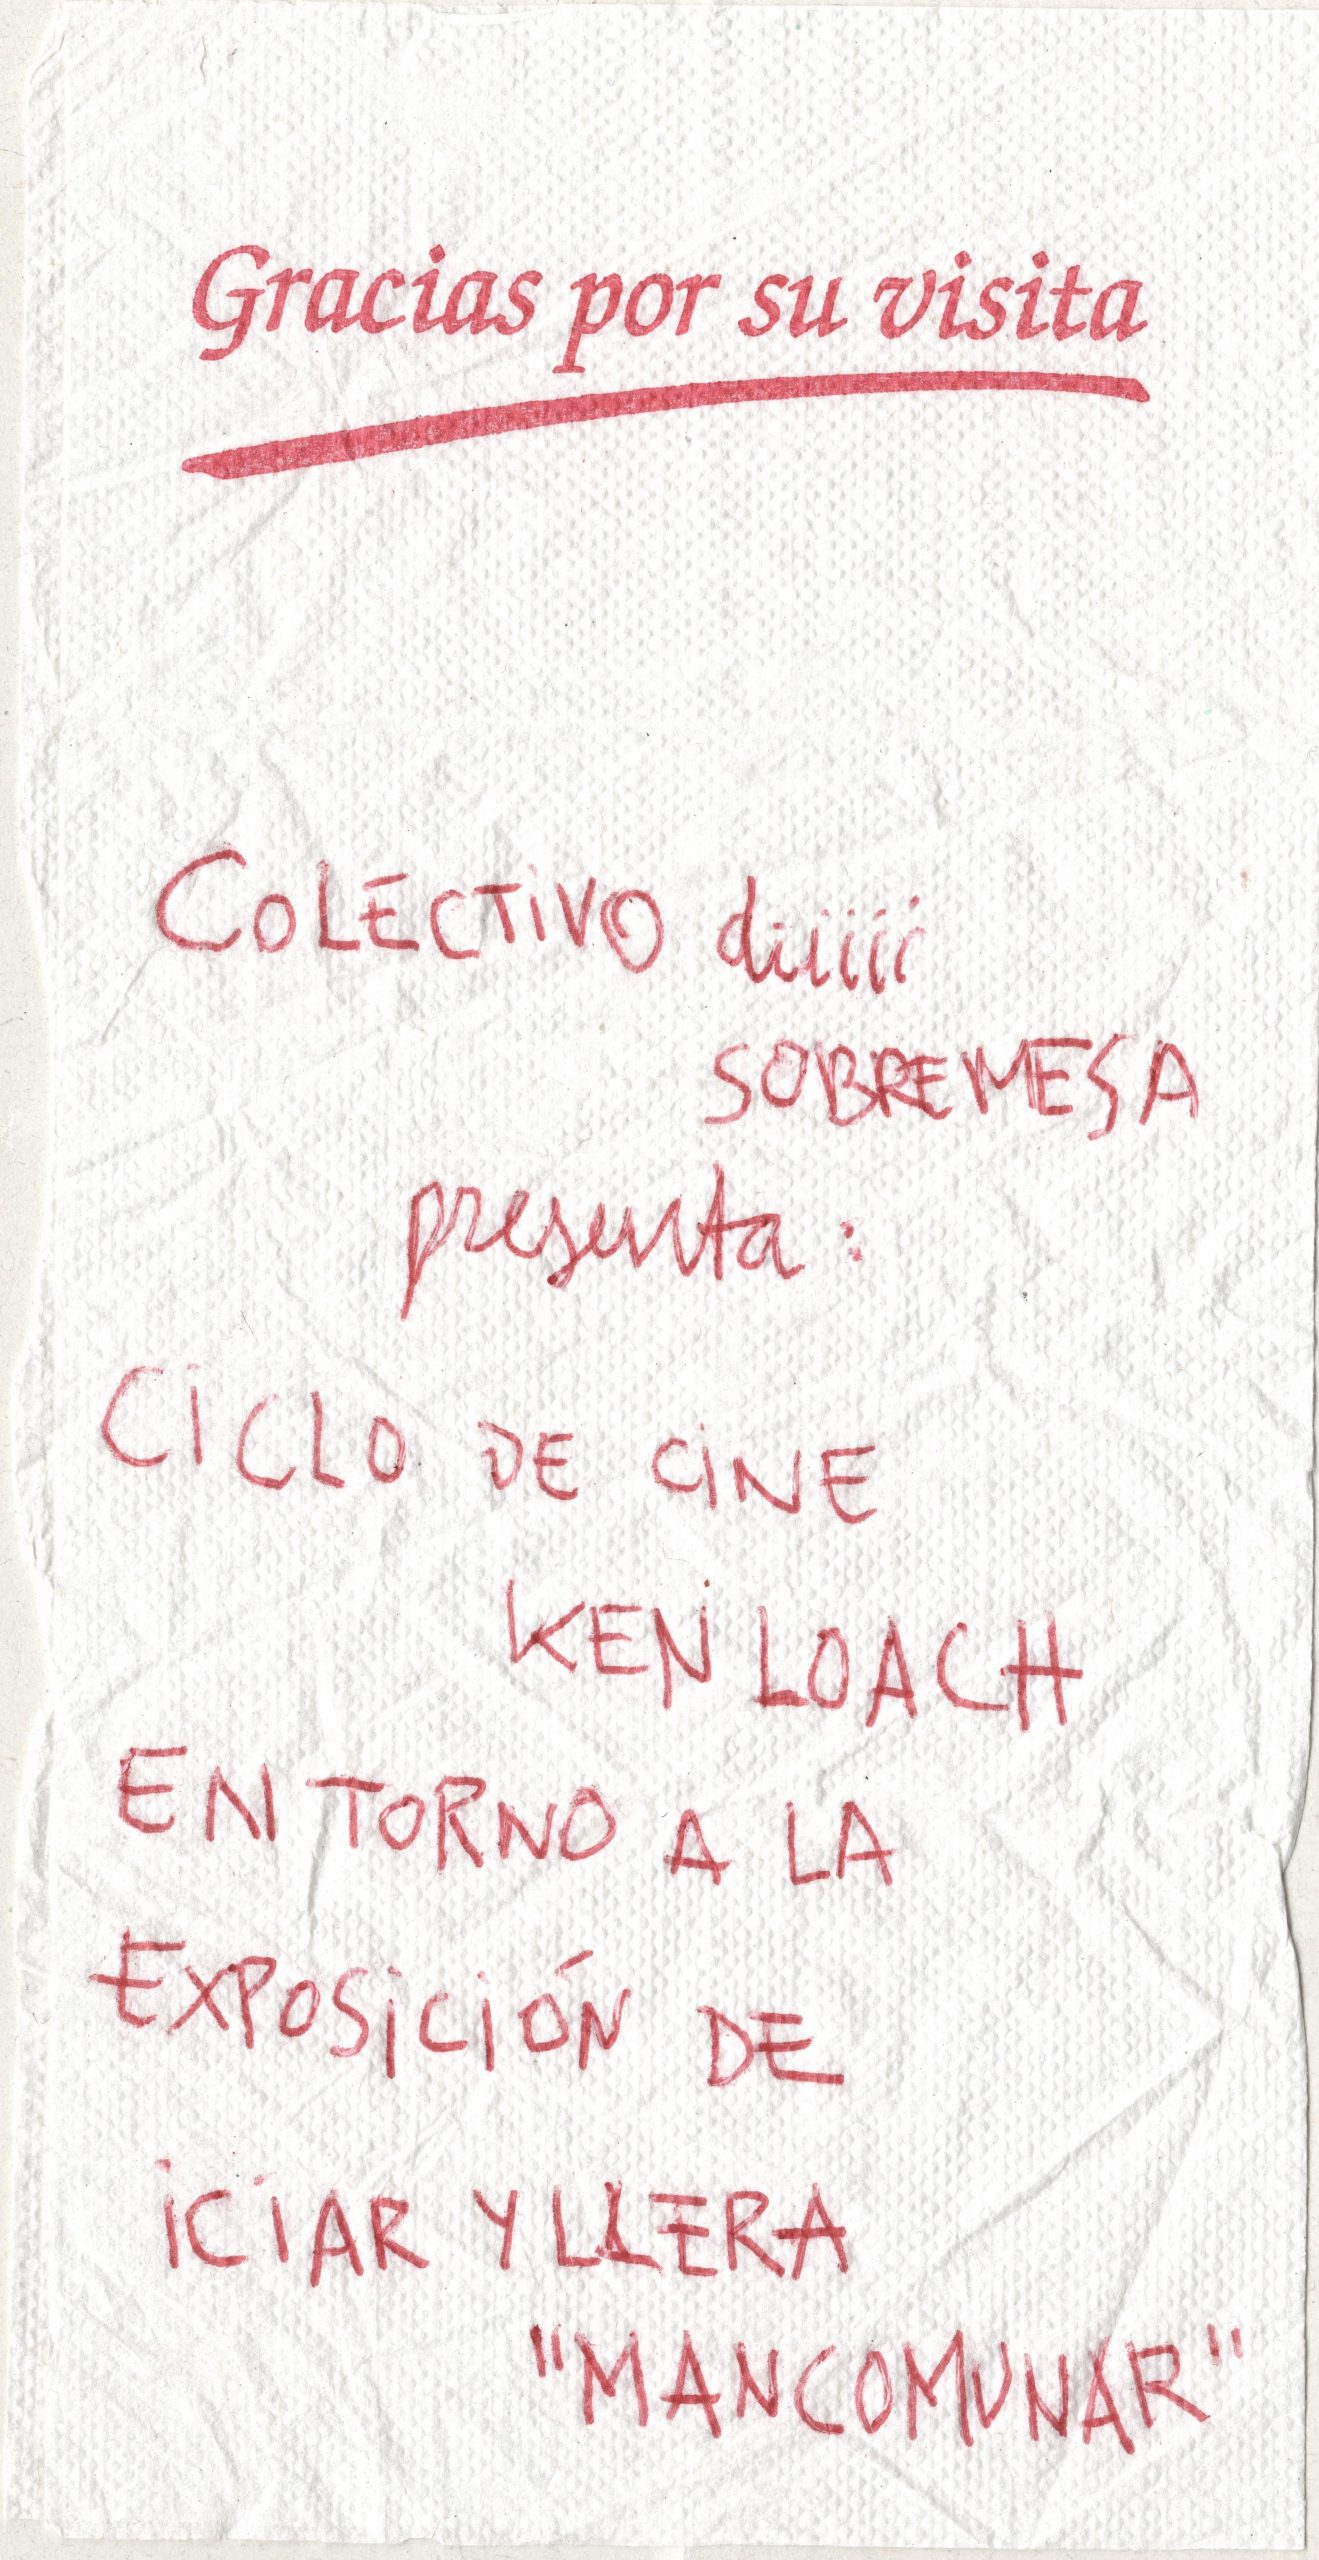 Gracias por su visita
COLECTIVO diiiiii
SOBREMESA
presenta:
CICLO DE CINE
KEN LOACH
EN TORNO A LA
EXPOSICIÓN DE
ICIAR YLLERA
"MANCOMUNAR"